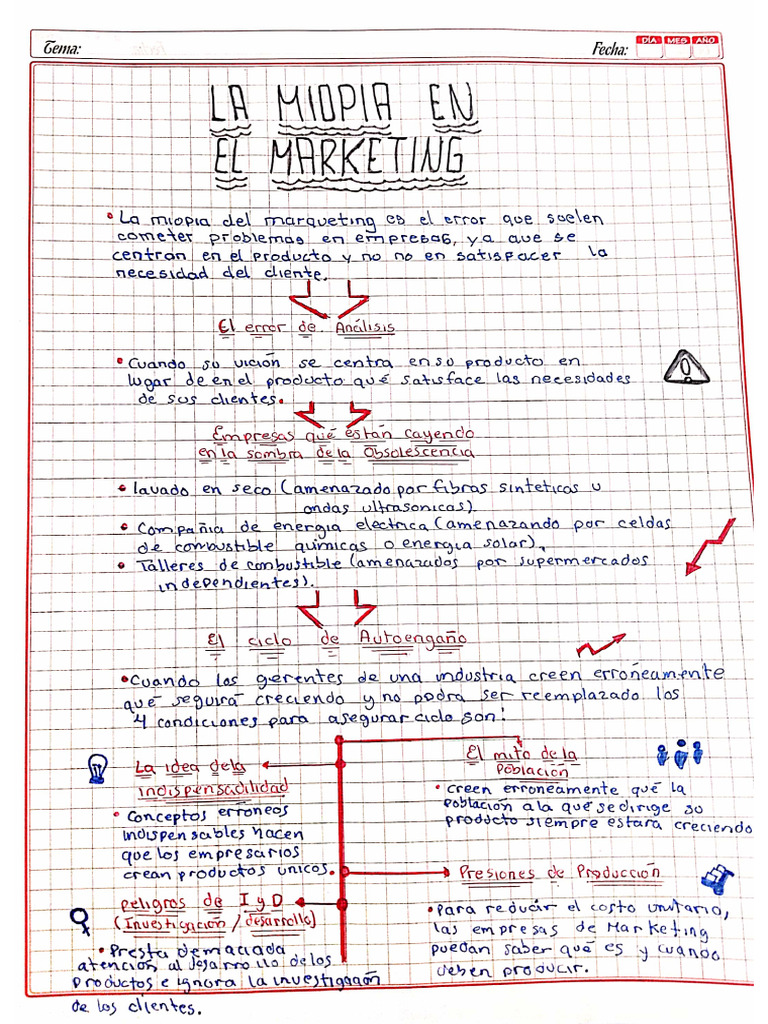 Tema:
Fecha:
DÍA MES AÑO
LA MIOPIA EN
EL MARKETING
• La miopia del marqueting es el error que suelen
cometer problemas en empresas, ya que se
centran en el producto y no no en satisfacer la
necesidad del cliente.
El error de Análisis
• Cuando su vición se centra en so producto en
lugar de en el producto qué satisface las necesidades
de sus clientes.
Empresas qué están cayendo
en la sombra de la Obsolescencia
• lavado en seco (amenazado por fibras sinteticas u
ondas ultrasonicas).
• Compañia de energia electrica (amenazando por celdas
de combustible químicas o energia solar).
• Talleres de combustible (amenazados por supermercados
independientes).
El ciclo de Autoengaño
• Cuando los gerentes de una industria creen erróneamente
qué seguirá creciendo y no podra ser reemplazado los
4 condiciones para asegurar ciclo son:
La idea dela
indispensadilidad
• Conceptos erroneos
indispensables hacen
que los empresarios
crean productos unicos.
El mito de la
Población
• creen erroneamente qué la
población a la qué se dirige so
producto siempre estara creciendo
peligros de I y D
(Investigación / desarrollo)
• Presta demaciada
atención al desarrollo de los
productos e ignora la investigación
de los clientes.
Presiones de Producción
• Para reducir el costo unitario,
las empresas de Marketing
puedan saber qué es y cuando
deben producir.